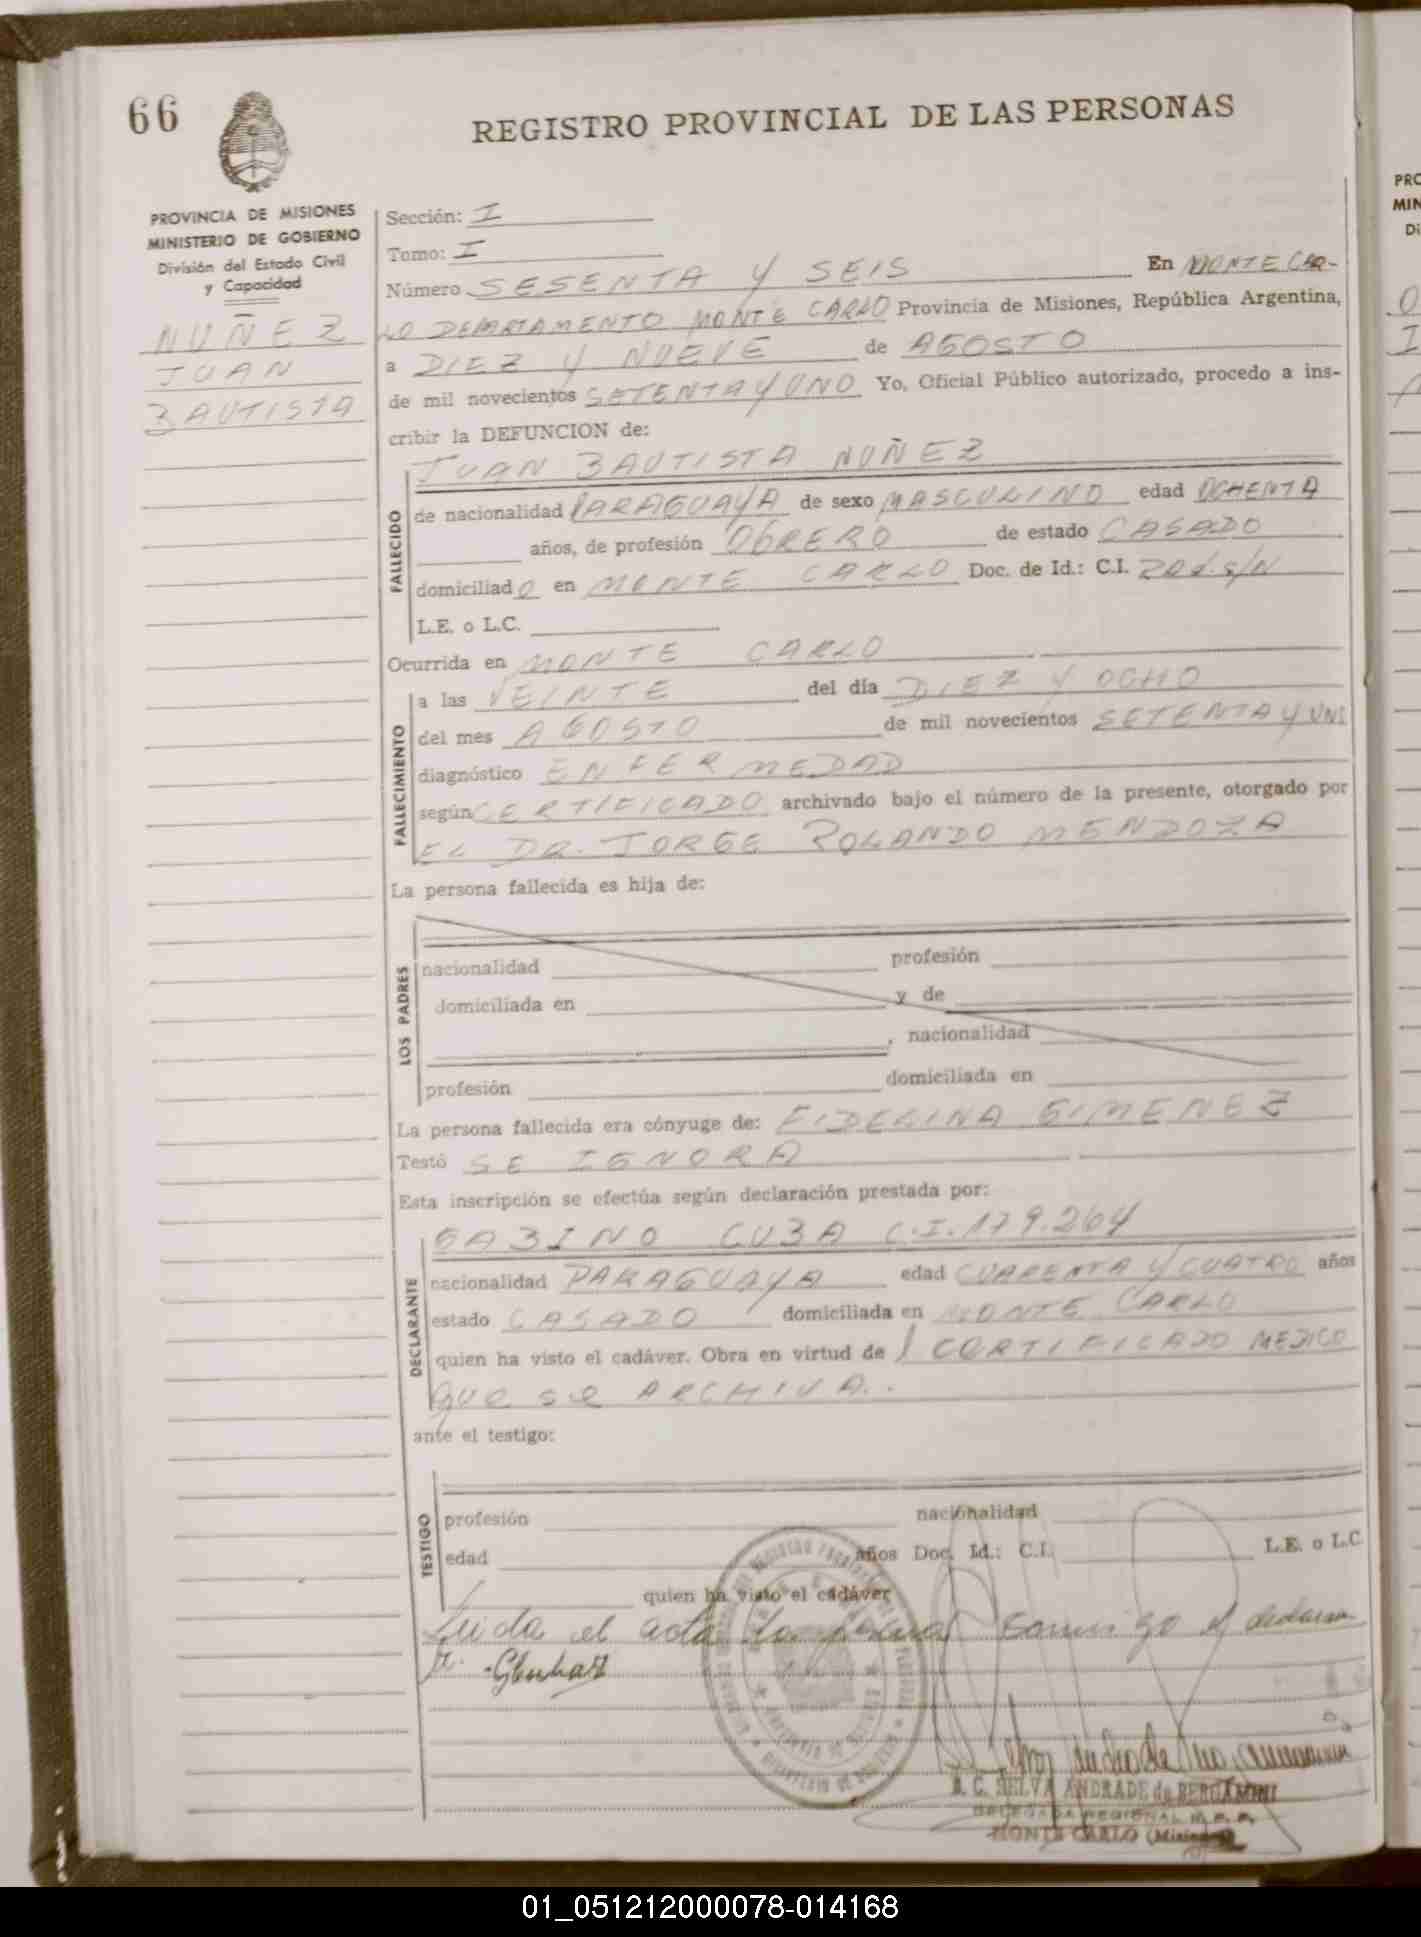 66
REGISTRO PROVINCIAL DE LAS PERSONAS
PROVINCIA DE MISIONES
MINISTERIO DE GOBIERNO
División del Estado Civil
y Capacidad
NUÑEZ
JUAN
BAUTISTA
Sección: I
Tomo: I
Número SESENTA Y SEIS En MONTE CAR-
LO DEPARTAMENTO MONTE CARLO Provincia de Misiones, República Argentina,
a DIEZ Y NUEVE de AGOSTO
de mil novecientos SETENTA Y UNO Yo, Oficial Público autorizado, procedo a ins-
cribir la DEFUNCION de:
JUAN BAUTISTA NUÑEZ
FALLECIDO
de nacionalidad PARAGUAYA de sexo MASCULINO edad OCHENTA
años, de profesión OBRERO de estado CASADO
domiciliado en MONTE CARLO Doc. de Id.: C.I. POL. S/N
L.E. o L.C.
Ocurrida en MONTE CARLO
FALLECIMIENTO
a las VEINTE del día DIEZ Y OCHO
del mes AGOSTO de mil novecientos SETENTA Y UNO
diagnóstico ENFERMEDAD
según CERTIFICADO archivado bajo el número de la presente, otorgado por
EL DR. JORGE ROLANDO MENDOZA
La persona fallecida es hija de:
LOS PADRES
nacionalidad profesión
domiciliada en y de
, nacionalidad
profesión domiciliada en
La persona fallecida era cónyuge de: FIDELINA GIMENEZ
Testó SE IGNORA
Esta inscripción se efectúa según declaración prestada por:
GABINO CUBA C.I. 179.264
DECLARANTE
nacionalidad PARAGUAYA edad CUARENTA Y CUATRO años
estado CASADO domiciliada en MONTE CARLO
quien ha visto el cadáver. Obra en virtud de 1 CERTIFICADO MEDICO
QUE SE ARCHIVA.
ante el testigo:
TESTIGO
profesión nacionalidad
edad años Doc. Id.: C.I. L.E. o L.C.
quien ha visto el cadáver
Leida el acta la firma conmigo el declaran
te.
A. C. SELVA ANDRADE de BERGAMINI
DELEGADA REGIONAL R.P.P.
MONTE CARLO (Misiones)
PRO
MIN
Di
01_051212000078-014168